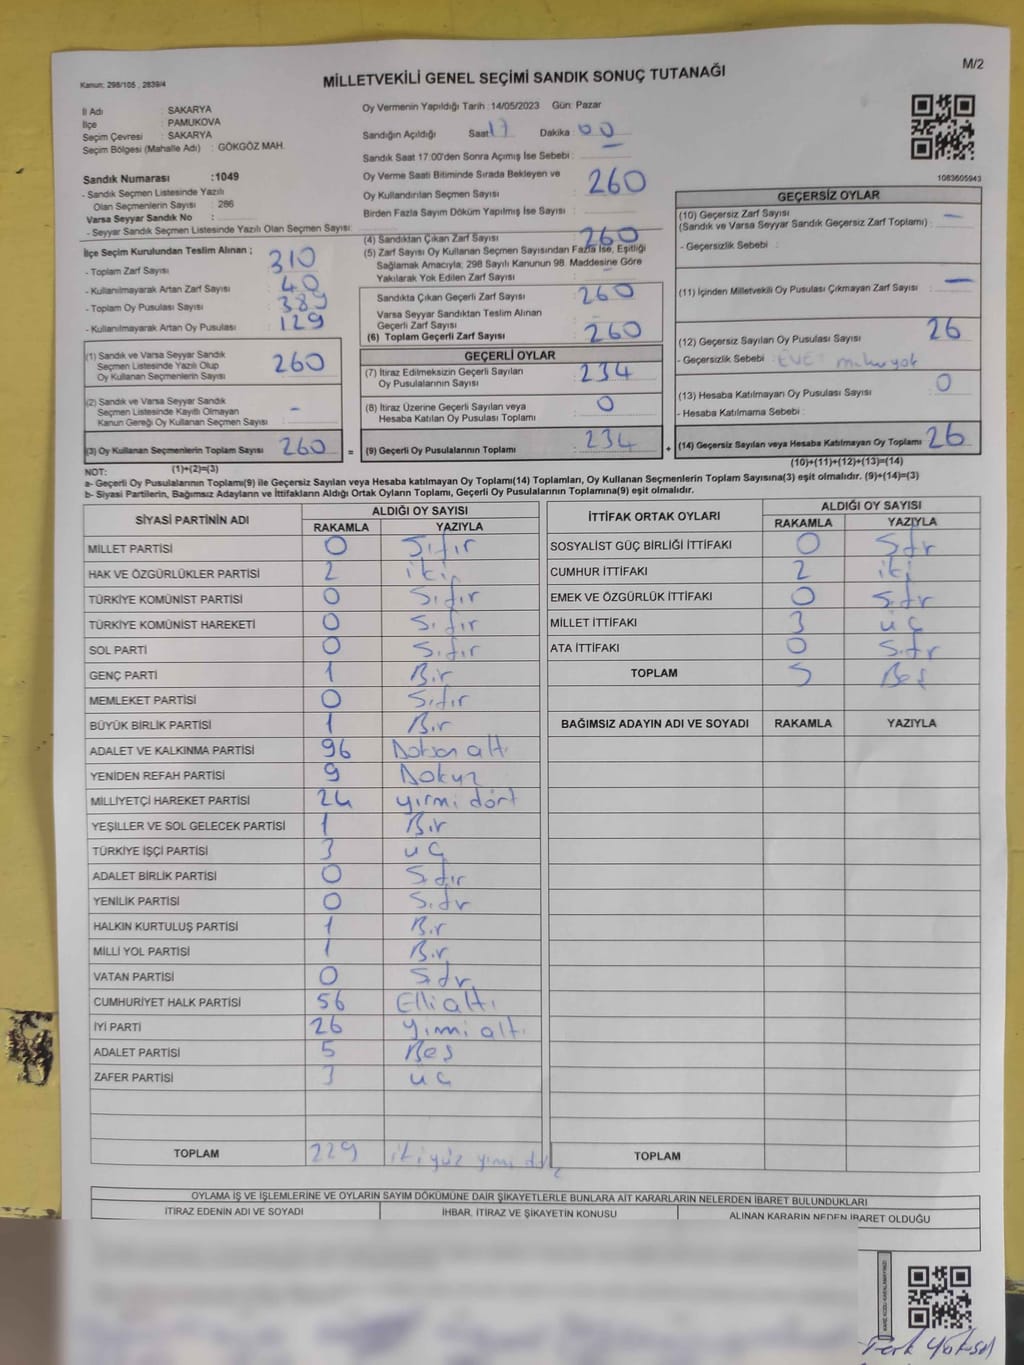 Kanun: 298/105 , 2839/4
MİLLETVEKİLİ GENEL SEÇİMİ SANDIK SONUÇ TUTANAĞI
M/2
İl Adı : SAKARYA
İlçe : PAMUKOVA
Seçim Çevresi : SAKARYA
Seçim Bölgesi (Mahalle Adı) : GÖKGÖZ MAH.
Sandık Numarası :1049
- Sandık Seçmen Listesinde Yazılı
Olan Seçmenlerin Sayısı : 286
Varsa Seyyar Sandık No :
- Seyyar Sandık Seçmen Listesinde Yazılı Olan Seçmen Sayısı:
Oy Vermenin Yapıldığı Tarih :14/05/2023 Gün: Pazar
Sandığın Açıldığı Saat 17 Dakika : 00
Sandık Saat 17:00'den Sonra Açımış İse Sebebi :
Oy Verme Saati Bitiminde Sırada Bekleyen ve
Oy Kullandırılan Seçmen Sayısı : 260
Birden Fazla Sayım Döküm Yapılmış İse Sayısı :
1083605943
İlçe Seçim Kurulundan Teslim Alınan ;
- Toplam Zarf Sayısı : 310
- Kullanılmayarak Artan Zarf Sayısı : 40
- Toplam Oy Pusulası Sayısı : 389
- Kullanılmayarak Artan Oy Pusulası : 129
(1) Sandık ve Varsa Seyyar Sandık
Seçmen Listesinde Yazılı Olup
Oy Kullanan Seçmenlerin Sayısı : 260
(2) Sandık ve Varsa Seyyar Sandık
Seçmen Listesinde Kayıtlı Olmayan
Kanun Gereği Oy Kullanan Seçmen Sayısı : -
(3) Oy Kullanan Seçmenlerin Toplam Sayısı : 260
(4) Sandıktan Çıkan Zarf Sayısı : 260
(5) Zarf Sayısı Oy Kullanan Seçmen Sayısından Fazla İse, Eşitliği
Sağlamak Amacıyla; 298 Sayılı Kanunun 98. Maddesine Göre
Yakılarak Yok Edilen Zarf Sayısı :
Sandıkta Çıkan Geçerli Zarf Sayısı : 260
Varsa Seyyar Sandıktan Teslim Alınan
Geçerli Zarf Sayısı :
(6) Toplam Geçerli Zarf Sayısı : 260
GEÇERLİ OYLAR
(7) İtiraz Edilmeksizin Geçerli Sayılan
Oy Pusulalarının Sayısı : 234
(8) İtiraz Üzerine Geçerli Sayılan veya
Hesaba Katılan Oy Pusulası Toplamı : 0
= (9) Geçerli Oy Pusulalarının Toplamı : 234
GEÇERSİZ OYLAR
(10) Geçersiz Zarf Sayısı
(Sandık ve Varsa Seyyar Sandık Geçersiz Zarf Toplamı) : -
- Geçersizlik Sebebi :
(11) İçinden Milletvekili Oy Pusulası Çıkmayan Zarf Sayısı : -
(12) Geçersiz Sayılan Oy Pusulası Sayısı : 26
- Geçersizlik Sebebi : EVET mühür yok
(13) Hesaba Katılmayan Oy Pusulası Sayısı : 0
- Hesaba Katılmama Sebebi :
+ (14) Geçersiz Sayılan veya Hesaba Katılmayan Oy Toplamı : 26
NOT: (1)+(2)=(3)
(10)+(11)+(12)+(13)=(14)
a- Geçerli Oy Pusulalarının Toplamı(9) ile Geçersiz Sayılan veya Hesaba katılmayan Oy Toplamı(14) Toplamları, Oy Kullanan Seçmenlerin Toplam Sayısına(3) eşit olmalıdır. (9)+(14)=(3)
b- Siyasi Partilerin, Bağımsız Adayların ve İttifakların Aldığı Ortak Oyların Toplamı, Geçerli Oy Pusulalarının Toplamına(9) eşit olmalıdır.
SİYASİ PARTİNİN ADI ALDIĞI OY SAYISI
RAKAMLA YAZIYLA
MİLLET PARTİSİ 0 Sıfır
HAK VE ÖZGÜRLÜKLER PARTİSİ 2 iki
TÜRKİYE KOMÜNİST PARTİSİ 0 Sıfır
TÜRKİYE KOMÜNİST HAREKETİ 0 Sıfır
SOL PARTİ 0 Sıfır
GENÇ PARTİ 1 Bir
MEMLEKET PARTİSİ 0 Sıfır
BÜYÜK BİRLİK PARTİSİ 1 Bir
ADALET VE KALKINMA PARTİSİ 96 Doksan altı
YENİDEN REFAH PARTİSİ 9 Dokuz
MİLLİYETÇİ HAREKET PARTİSİ 24 yirmi dört
YEŞİLLER VE SOL GELECEK PARTİSİ 1 Bir
TÜRKİYE İŞÇİ PARTİSİ 3 üç
ADALET BİRLİK PARTİSİ 0 Sıfır
YENİLİK PARTİSİ 0 Sıfır
HALKIN KURTULUŞ PARTİSİ 1 Bir
MİLLİ YOL PARTİSİ 1 Bir
VATAN PARTİSİ 0 Sıfır
CUMHURİYET HALK PARTİSİ 56 Elli altı
İYİ PARTİ 26 yirmi altı
ADALET PARTİSİ 5 Beş
ZAFER PARTİSİ 3 üç
TOPLAM 229 iki yüz yirmi
İTTİFAK ORTAK OYLARI ALDIĞI OY SAYISI
RAKAMLA YAZIYLA
SOSYALİST GÜÇ BİRLİĞİ İTTİFAKI 0 Sıfır
CUMHUR İTTİFAKI 2 iki
EMEK VE ÖZGÜRLÜK İTTİFAKI 0 Sıfır
MİLLET İTTİFAKI 3 üç
ATA İTTİFAKI 0 Sıfır
TOPLAM 5 Beş
BAĞIMSIZ ADAYIN ADI VE SOYADI RAKAMLA YAZIYLA
TOPLAM
OYLAMA İŞ VE İŞLEMLERİNE VE OYLARIN SAYIM DÖKÜMÜNE DAİR ŞİKAYETLERLE BUNLARA AİT KARARLARIN NELERDEN İBARET BULUNDUKLARI
İTİRAZ EDENİN ADI VE SOYADI İHBAR, İTİRAZ VE ŞİKAYETİN KONUSU ALINAN KARARIN NEDEN İBARET OLDUĞU